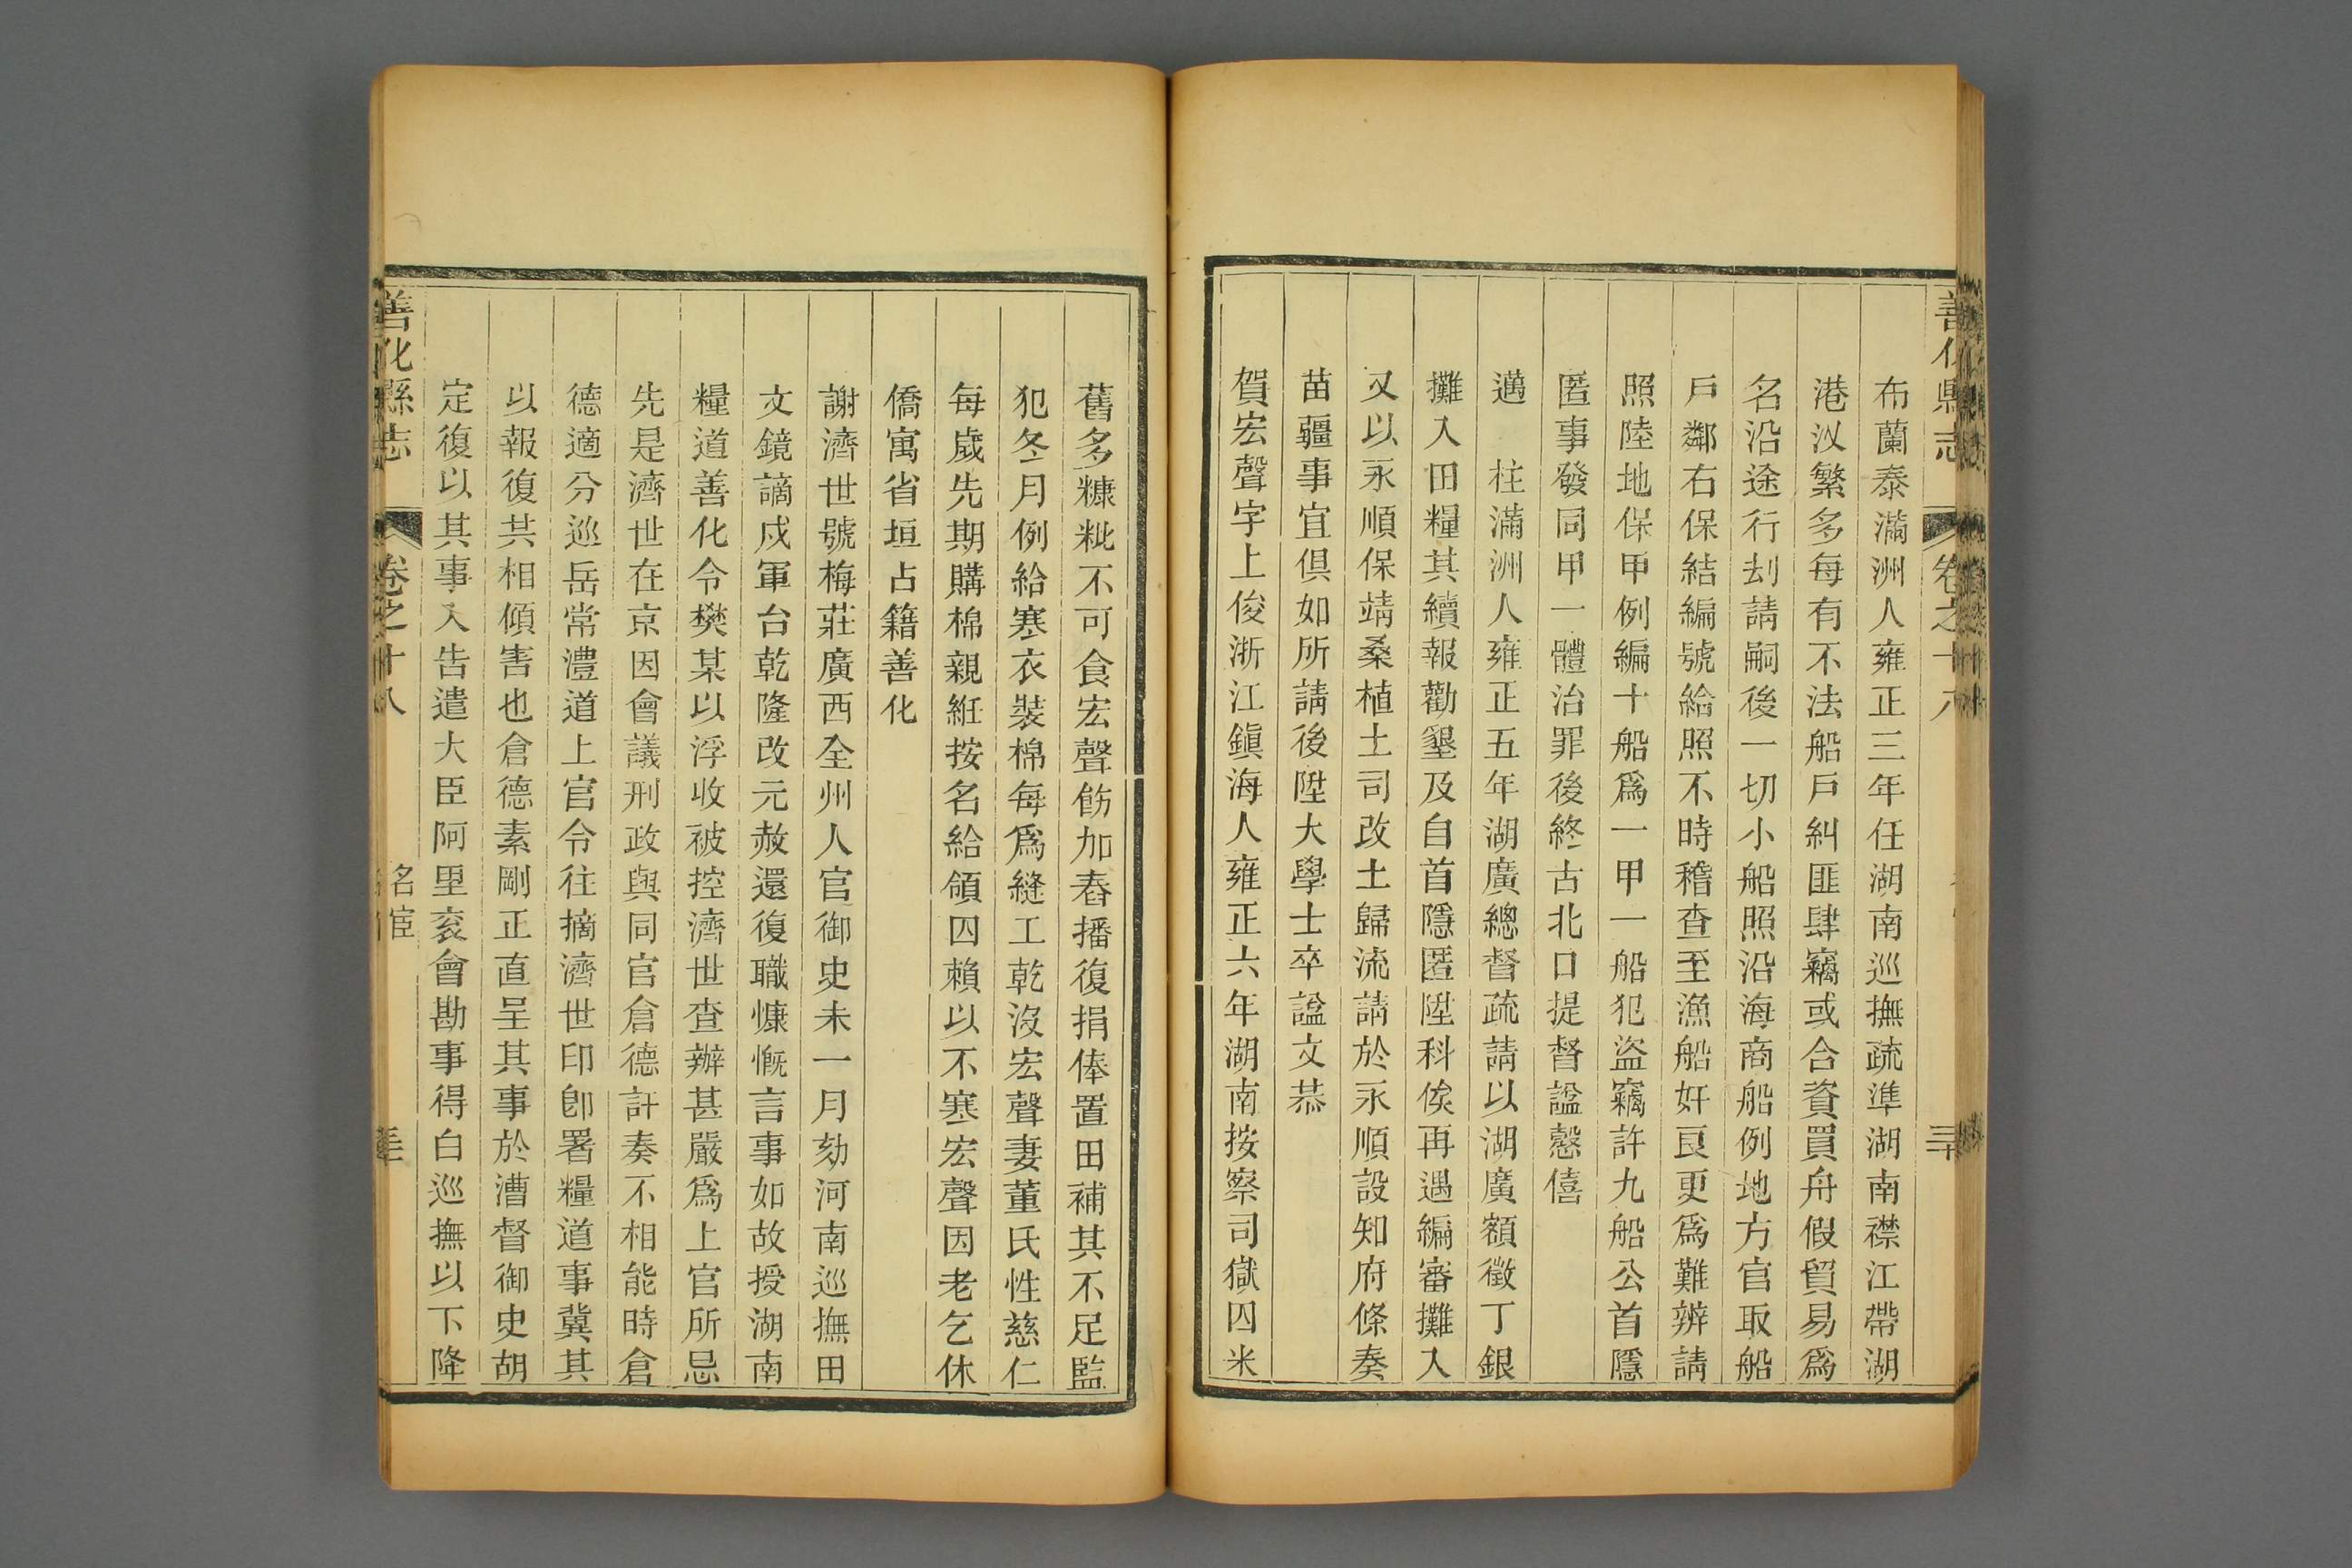 善化縣志
卷之十八
三十
布蘭泰滿洲人雍正三年任湖南巡撫疏準湖南襟江帶湖
港汊繁多每有不法船戶糾匪肆竊或合資買舟假貿易爲
名沿途行刦請嗣後一切小船照沿海商船例地方官取船
戶鄰右保結編號給照不時稽查至漁船奸良更爲難辨請
照陸地保甲例編十船爲一甲一船犯盜竊許九船公首隱
匿事發同甲一體治罪後終古北口提督謚慤僖
邁　柱滿洲人雍正五年湖廣總督疏請以湖廣額徵丁銀
攤入田糧其續報勸墾及自首隱匿陞科俟再遇編審攤入
又以永順保靖桑植土司改土歸流請於永順設知府條奏
苗疆事宜俱如所請後陞大學士卒謚文恭
賀宏聲字上俊浙江鎭海人雍正六年湖南按察司獄囚米
舊多糠粃不可食宏聲飭加舂播復捐俸置田補其不足監
犯冬月例給寒衣裝棉每爲縫工乾沒宏聲妻董氏性慈仁
每歲先期購棉親絍按名給領囚賴以不寒宏聲因老乞休
僑寓省垣占籍善化
謝濟世號梅莊廣西全州人官御史未一月劾河南巡撫田
文鏡謫戍軍台乾隆改元赦還復職慷慨言事如故授湖南
糧道善化令樊某以浮收被控濟世查辦甚嚴爲上官所忌
先是濟世在京因會議刑政與同官倉德訐奏不相能時倉
德適分巡岳常澧道上官令往摘濟世印卽署糧道事冀其
以報復共相傾害也倉德素剛正直呈其事於漕督御史胡
定復以其事入告遣大臣阿里衮會勘事得白巡撫以下降
善化縣志
卷之十八
名宦